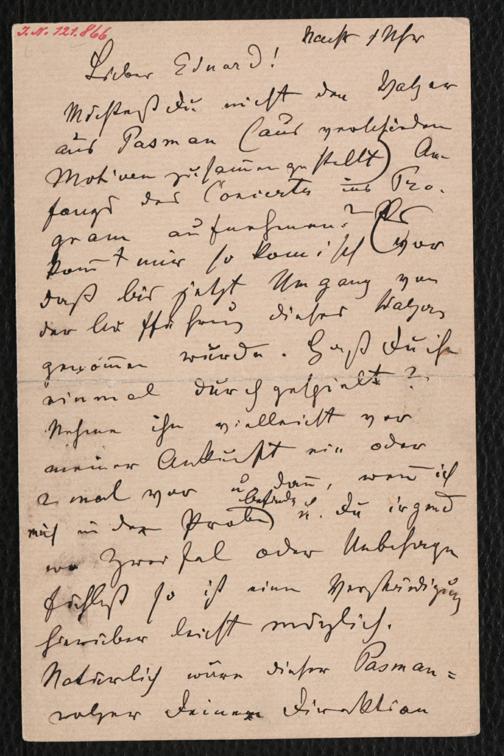 J.N. 121.866
Nachts 1 Uhr
Lieber Eduard!
Möchtest du nicht den Walzer
aus Pasman (aus verschieden
Motiven zusammengestellt) An-
fangs des Concerts ins Pro-
gram aufnehmen? Es
komt mir so komisch vor
daß bis jetzt Umgang von
der Aufführung dieses Walzers
genommen wurde. Hast du ihn
einmal durchgespielt?
Nehme ihn vielleicht vor
meiner Ankunft ein oder
2 mal vor u dann, wenn ich
mich in der Probe befinde u. du irgend
wo Zweifel oder Unbehagen
fühlest so ist eine Verständigung
hierüber leicht möglich.
Natürlich wäre dieser Pasman=
walzer deiner Direktion